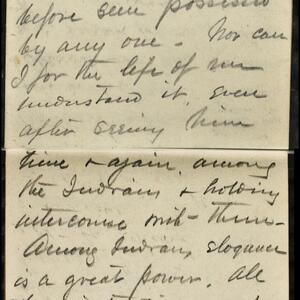 before seen possessed
by any one - Nor can
I for the life of me
understand it, even
after seeing him
time & again, among
the Indians & holding
intercourse with them -
Among Indians, eloquence
is a great power. All